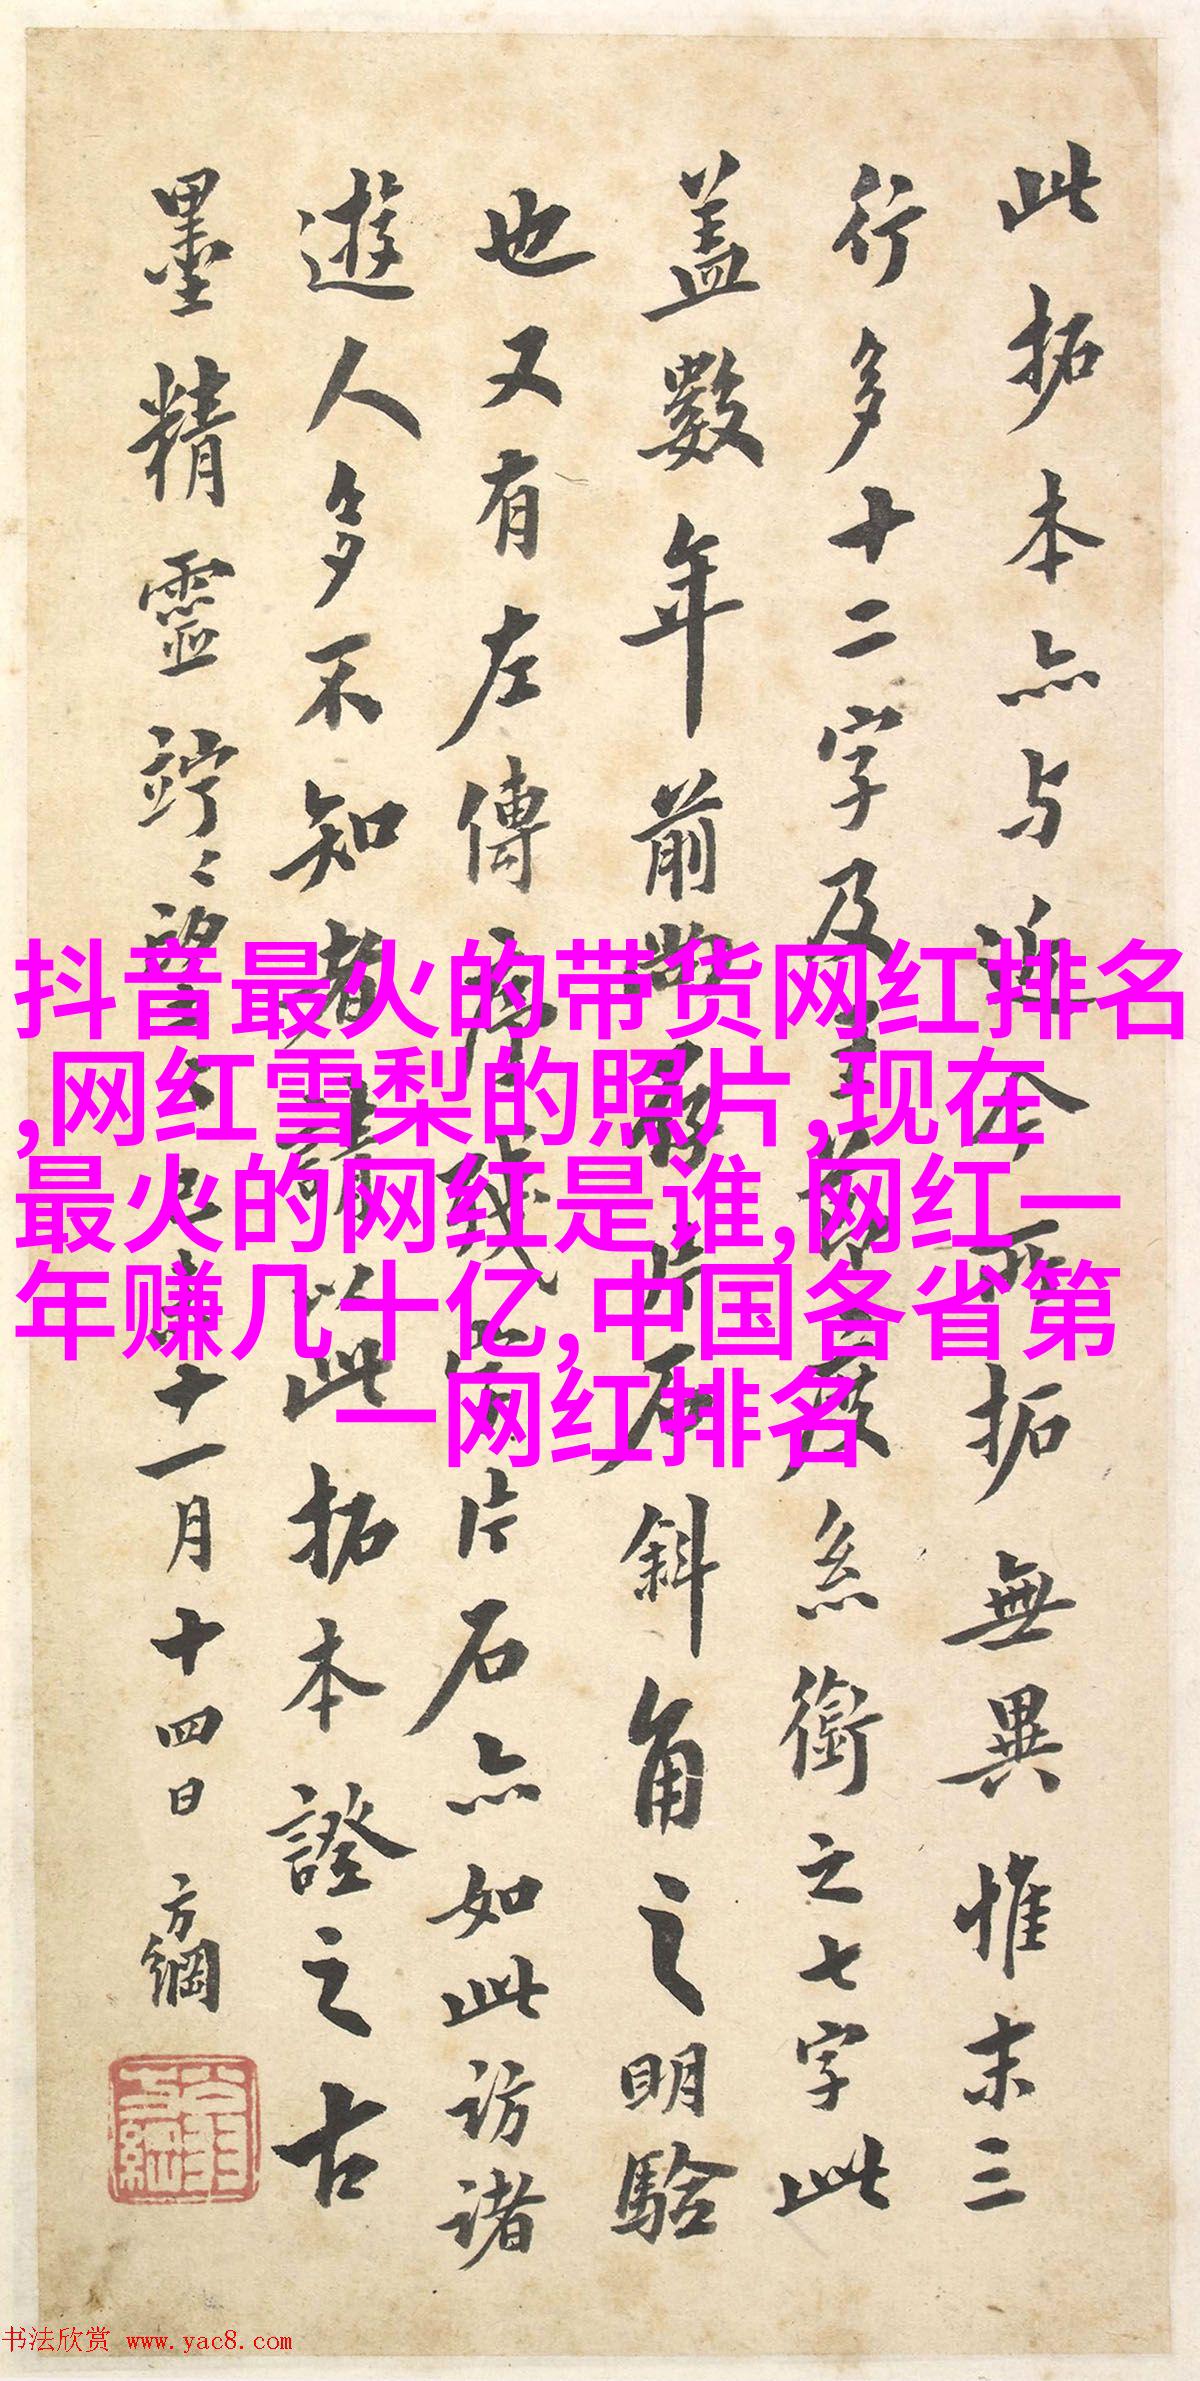 此拓本亦与近今所拓無異惟末三
行多十二字及
絲銜之七字此
蓋數年前
斜角之明驗
也又有左傳
片石亦如此訪诸
遊人多不知者請以此拓本證之古
墨精靈
十一月十四日方綱
抖音最火的带货网红排名
,网红雪梨的照片,现在
最火的网红是谁,网红一
年赚几十亿,中国各省第
一网红排名
书法欣赏 www.yac8.com